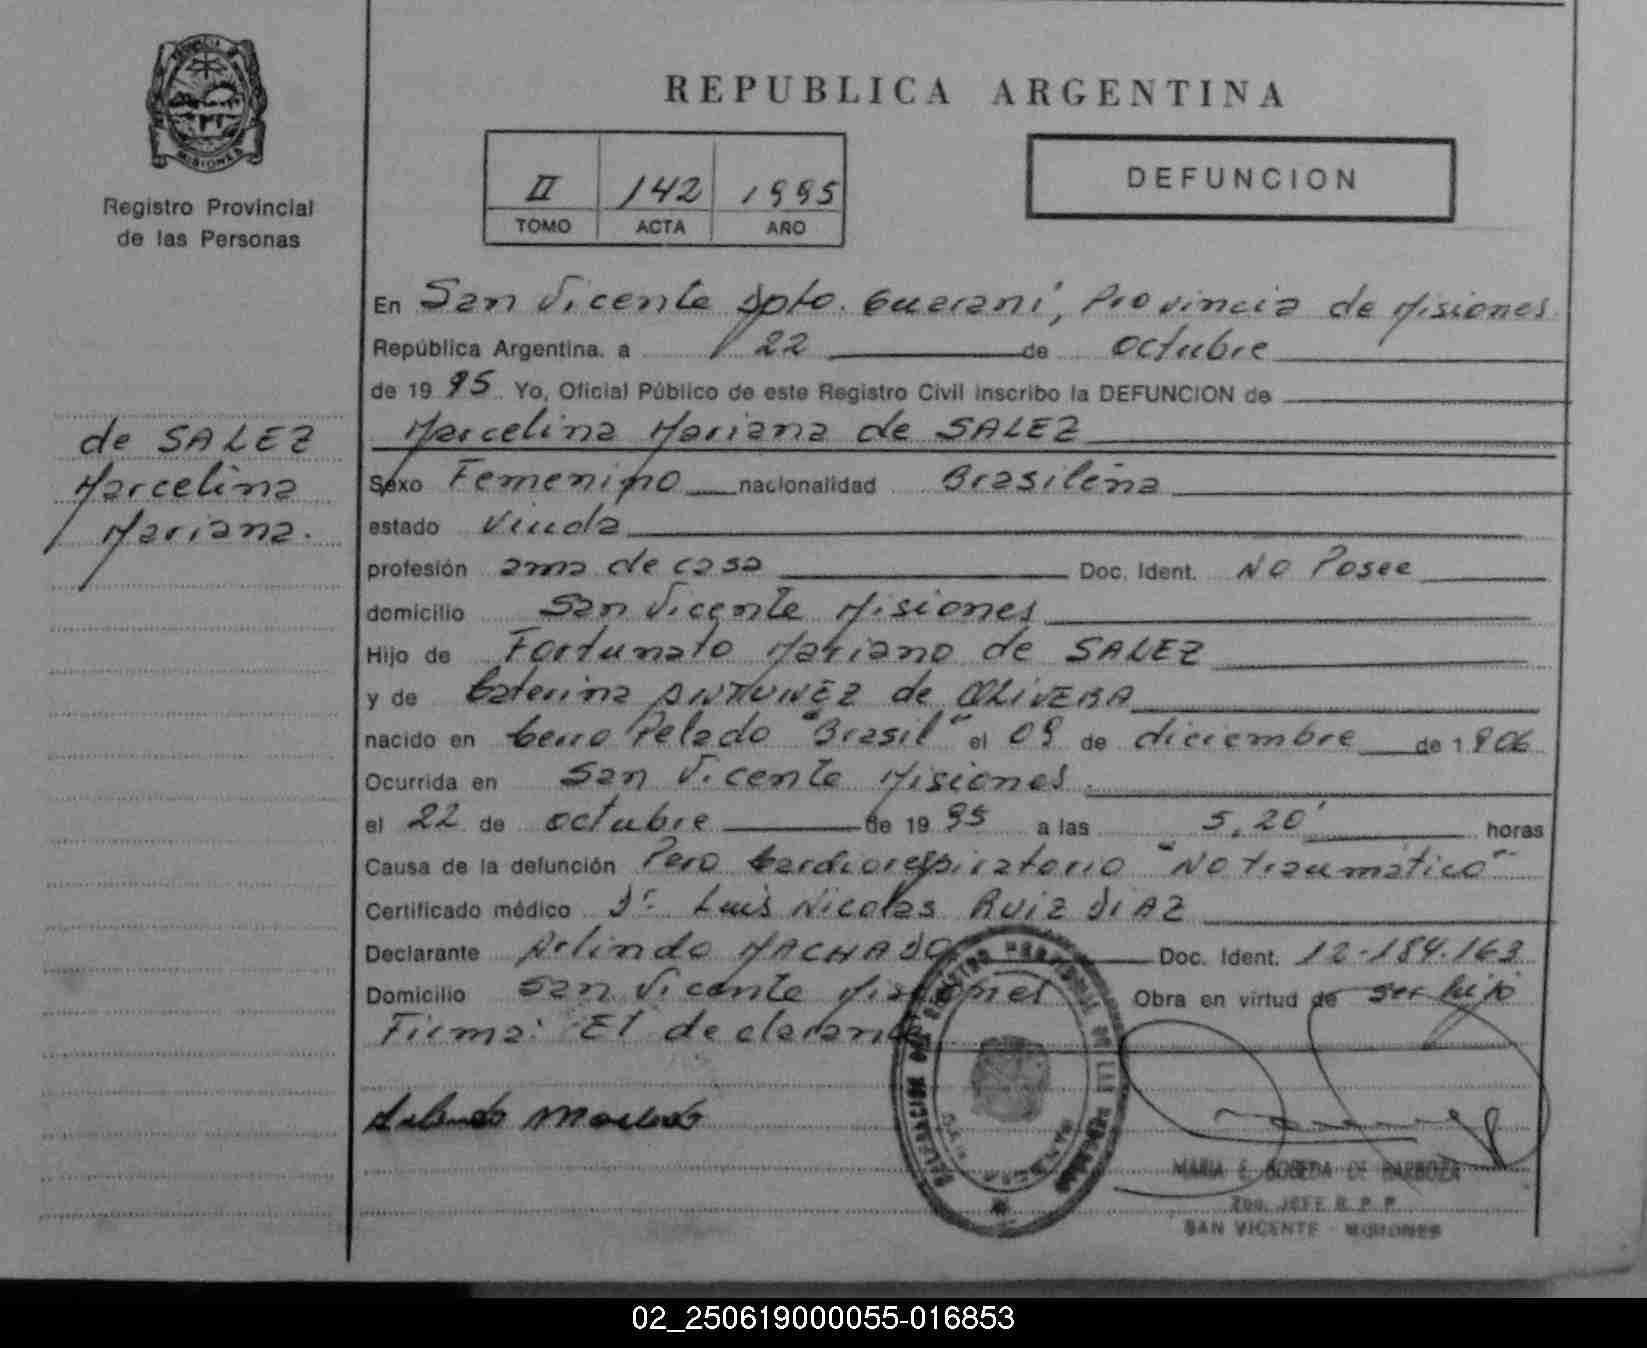 PROVINCIA DE
MISIONES
Registro Provincial
de las Personas
REPUBLICA ARGENTINA
II 142 1995
TOMO ACTA AÑO
DEFUNCION
En San Vicente Dpto. Guarani, Provincia de Misiones
República Argentina. a 22 de octubre
de 1995 Yo, Oficial Público de este Registro Civil inscribo la DEFUNCION de
Marcelina Mariana de SALEZ
de SALEZ
Marcelina
Mariana.
Sexo Femenino nacionalidad Brasileña
estado Viuda
profesión ama de casa Doc. Ident. No Posee
domicilio San Vicente Misiones
Hijo de Fortunato Mariano de SALEZ
y de Caterina ANTUNEZ de OLIVERA
nacido en Cerro Pelado "Brasil" el 09 de diciembre de 1906
Ocurrida en San Vicente Misiones
el 22 de octubre de 1995 a las 5,20' horas
Causa de la defunción Paro Cardiorespiratorio "No traumático"
Certificado médico Dr. Luis Nicolas RUIZ DIAZ
Declarante Arlindo MACHADO Doc. Ident. 12-184.163
Domicilio San Vicente Misiones Obra en virtud de ser hijo
Firma: El declarante
MARIA E. BOBEDA DE BARBOZA
2do. JEFE R. P. P.
SAN VICENTE - MISIONES
02_250619000055-016853